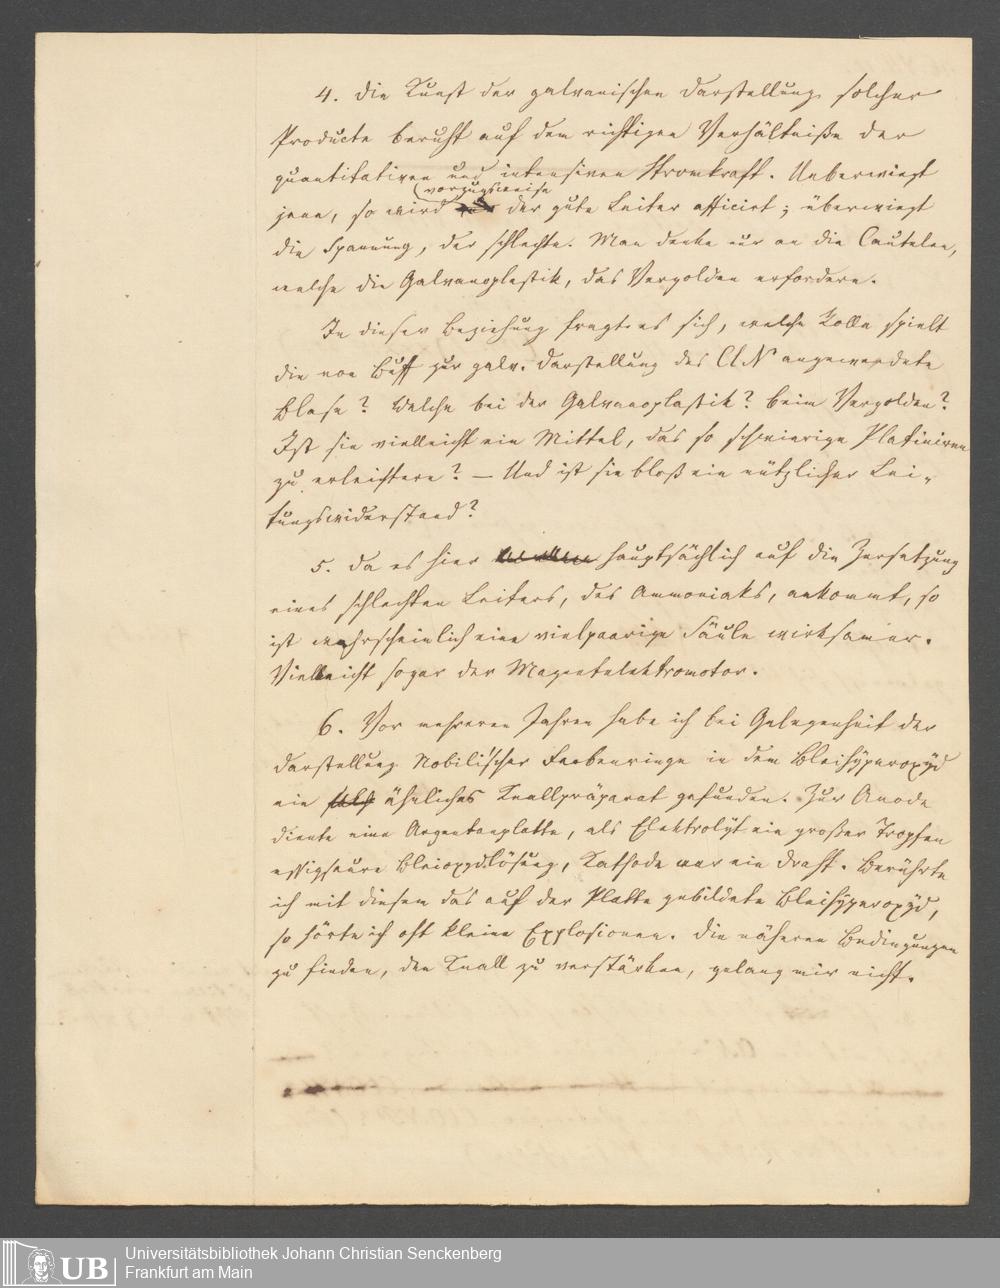 4. Die Kunst der galvanischen Darstellung solcher
Producte beruht auf dem richtigen Verhältniße der
quantitativen und intensiven Stromkraft. Ueberwiegt
vorzugsweise
jene, so wird der gute Leiter afficirt; überwiegt
die Spannung, der schlechte. Man denke nur an die Cautelen,
welche die Galvanoplastik, das Vergolden erfordern.
In dieser Beziehung fragt es sich, welche Rolle spielt
die von Buff zur galv. Darstellung des angewendete
Blase? Welche bei der Galvanoplastik? Beim Vergolden?
Ist sie vielleicht ein Mittel, das so schwierige Platiniren
zu erleichtern? — Und ist sie bloß ein nützlicher Lei-
tungswiderstand?
5. Da es hier hauptsächlich auf die Zersetzung
eines schlechten Leiters, des Ammoniaks, ankommt, so
ist wahrscheinlich eine vielpaarige Säule wirksamer.
Vielleicht sogar der Magnetelektromotor.
6. Vor mehreren Jahren habe ich bei Gelegenheit der
Darstellung Nobili'scher Farbenringe in dem Bleihyperoxÿd
ein ähnliches Knallpräparat gefunden. Zur Anode
diente eine Argentanplatte, als Elektrolÿt ein großer Tropfen
essigsaure Bleioxydlösung, Kathode war ein Draht. Berührte
ich mit diesem das auf der Platte gebildete Bleihyperoxÿd,
so hörte ich oft kleine Explosionen. Die näheren Bedingungen
zu finden, den Knall zu verstärken, gelang mir nicht.
UB
Universitätsbibliothek Johann Christian Senckenberg
Frankfurt am Main